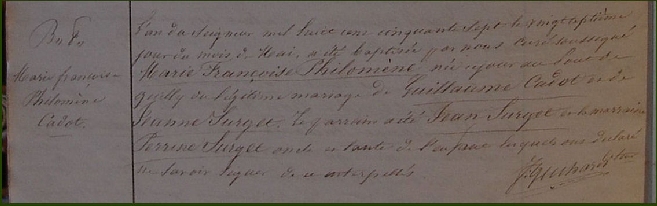 Bap.
Marie françoise
Philomène
Cadot.
L'an du Seigneur mil huit cent cinquante sept le vingt septième
jour du mois de Mai, a été baptisée par nous Curé soussigné
Marie Françoise Philomène née ce jour au bout de
du légitime mariage de Guillaume Cadot et de
Jeanne Surget. Le parrain a été Jean Surget et la marraine
Perrine Surget oncle et tante de l'enfant lesquels ont déclaré
ne savoir signer de ce interpellés
J. Guihard